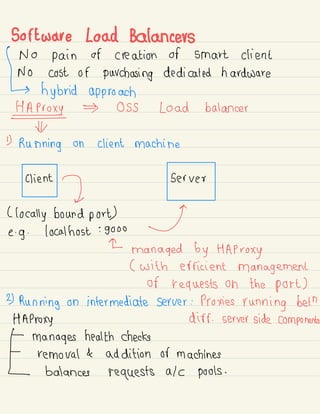 Software Load Balancers
No pain of creation of smart client
No cost of purchasing dedicated hardware
→ hybrid approach
HAProxy ⇒ OSS Load balancer
1) Running on client machine
Client Server
(locally bound port)
e.g. localhost : 9000
managed by HAProxy
(with efficient management
of requests on the port)
2) Running on intermediate server : Proxies running betn
HAProxy diff. server side components
manages health checks
removal & addition of machines
balances requests a/c pools.